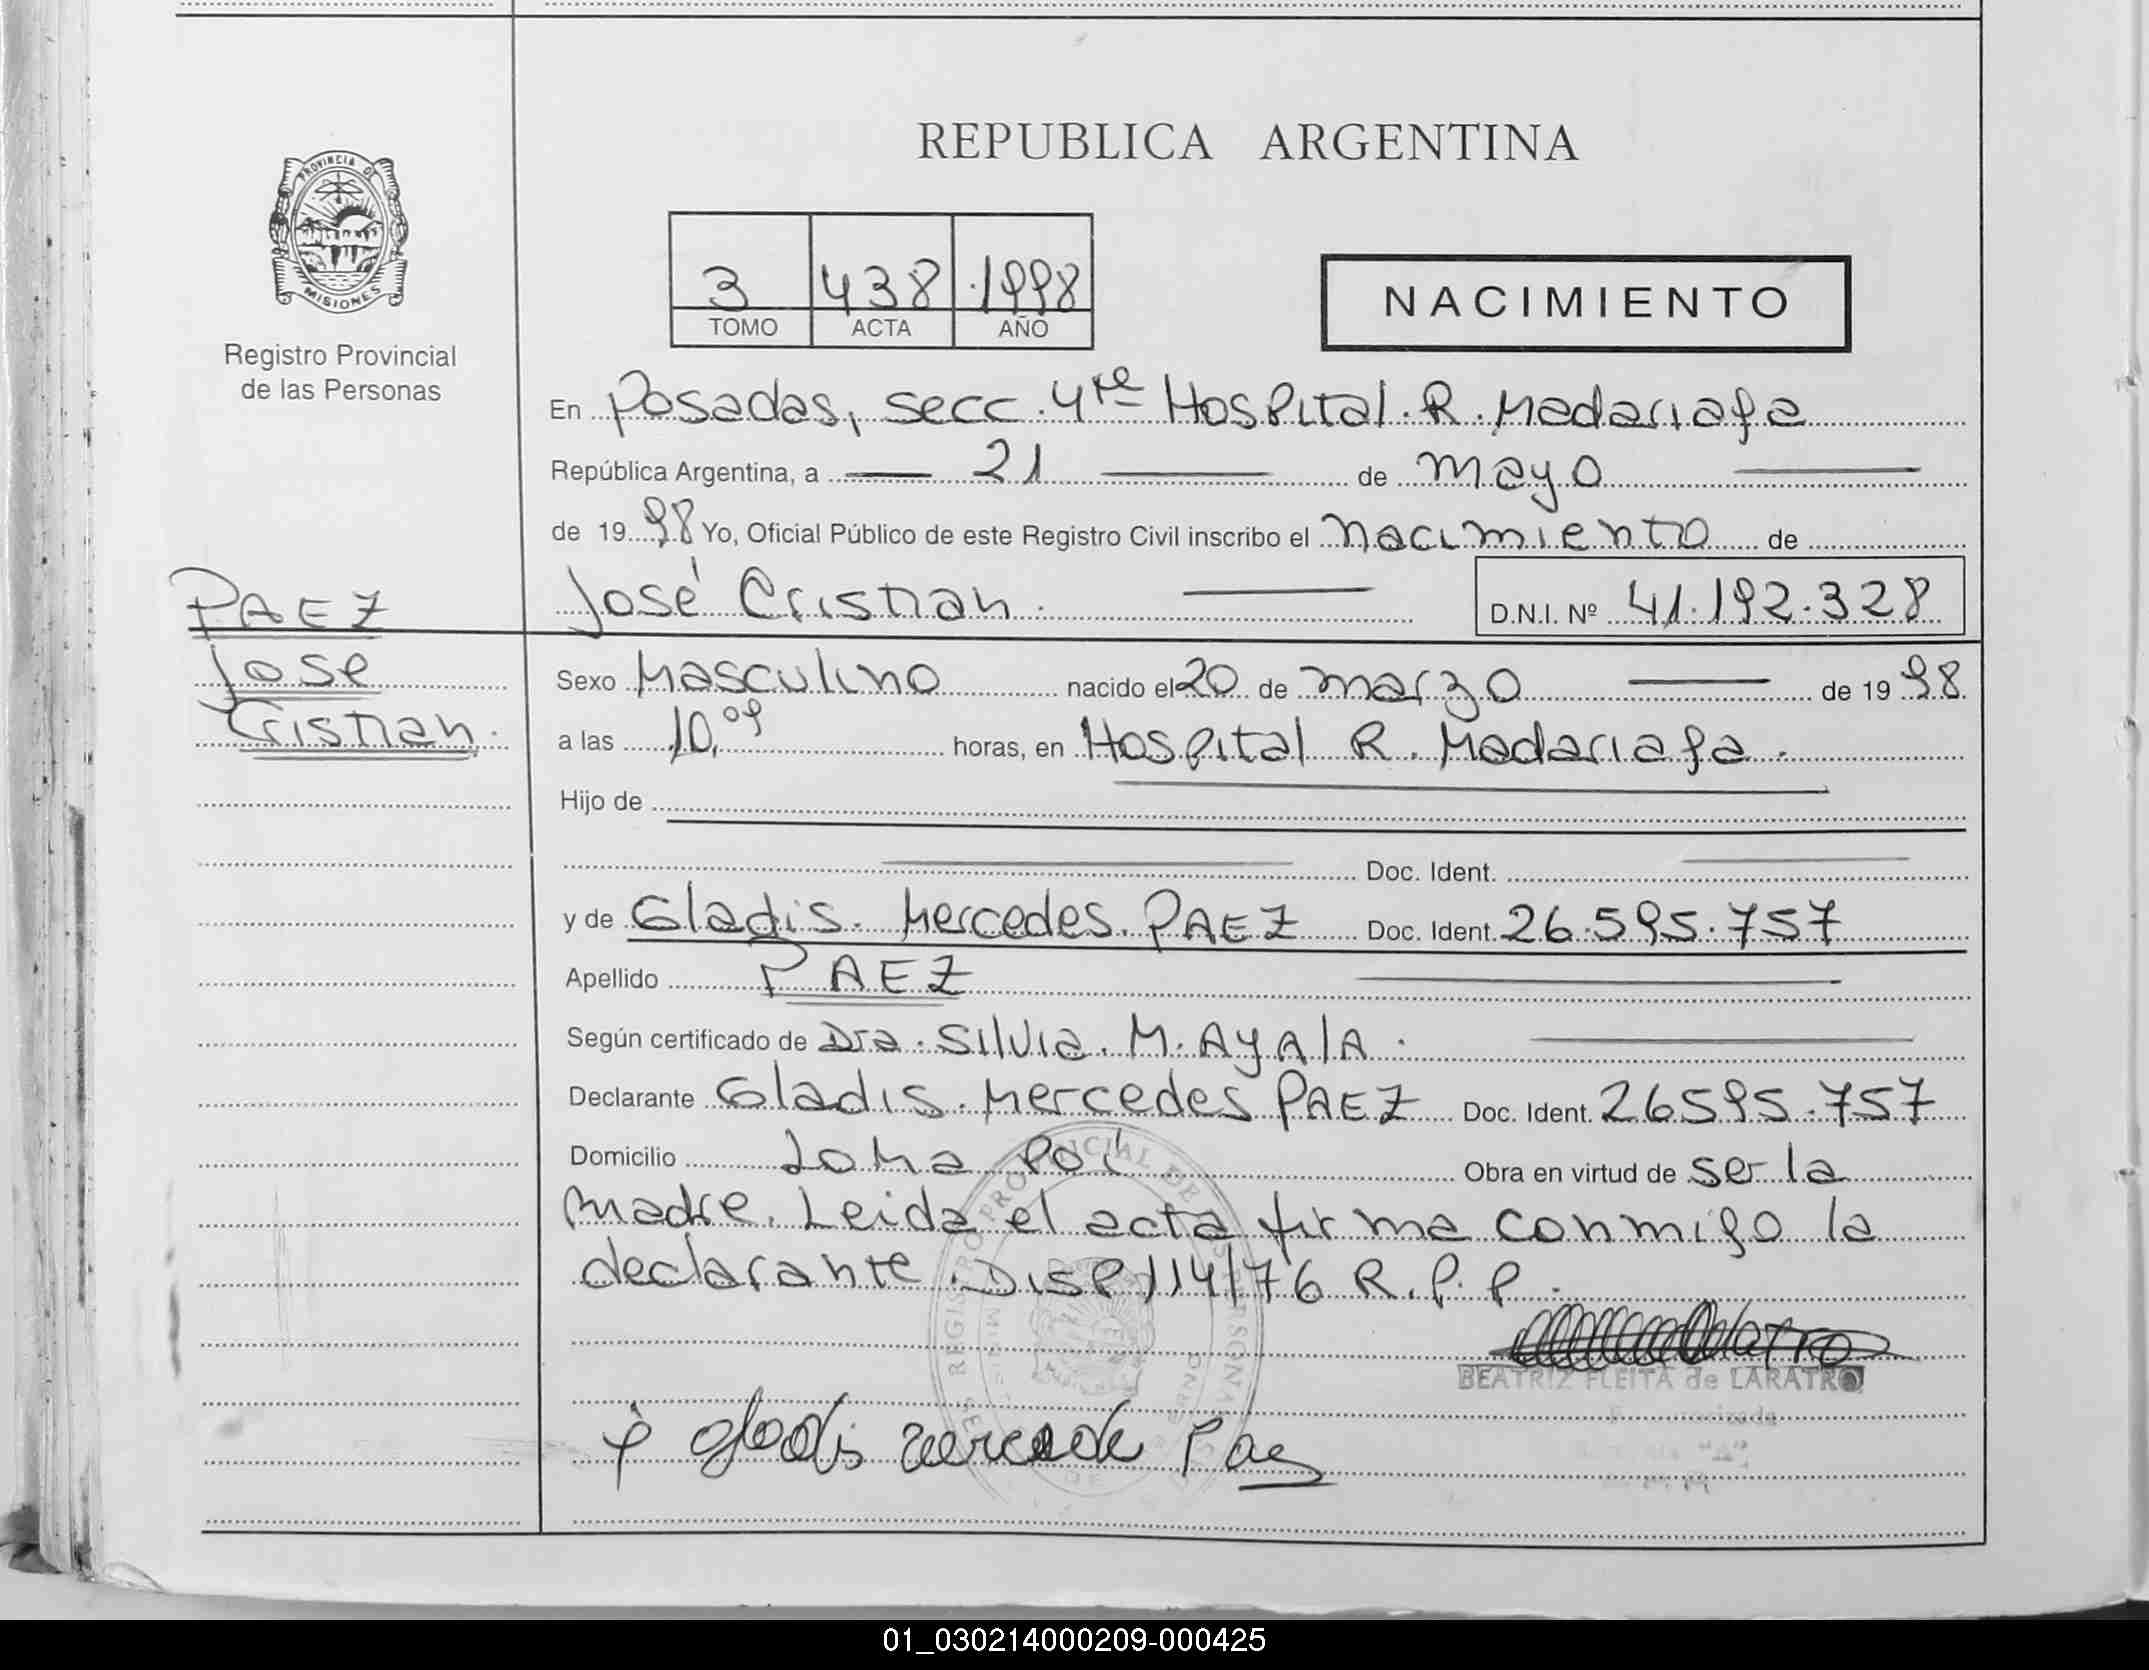 REPUBLICA ARGENTINA
PROVINCIA DE
MISIONES
Registro Provincial
de las Personas
3 438 1998
TOMO ACTA AÑO
NACIMIENTO
En Posadas, secc. 4ta Hospital. R. Madariaga
República Argentina, a 21 de mayo
de 1998 Yo, Oficial Público de este Registro Civil inscribo el nacimiento de
PAEZ
José Cristian. D.N.I. Nº 41.192.328
Jose
Cristian.
Sexo Masculino nacido el 20 de marzo de 1998
a las 10,09 horas, en Hospital R. Madariaga.
Hijo de
Doc. Ident.
y de Gladis. Mercedes. PAEZ Doc. Ident. 26.595.757
Apellido PAEZ
Según certificado de Dra. Silvia. M. AyAlA.
Declarante Gladis. Mercedes PAEZ Doc. Ident. 26595.757
Domicilio Loma Poi Obra en virtud de ser la
madre. Leida el acta firma conmigo la
declarante. Disp 114/76 R.P.P.
BEATRIZ FLEITA de LARATRO
gladis mercede Paez
01_030214000209-000425